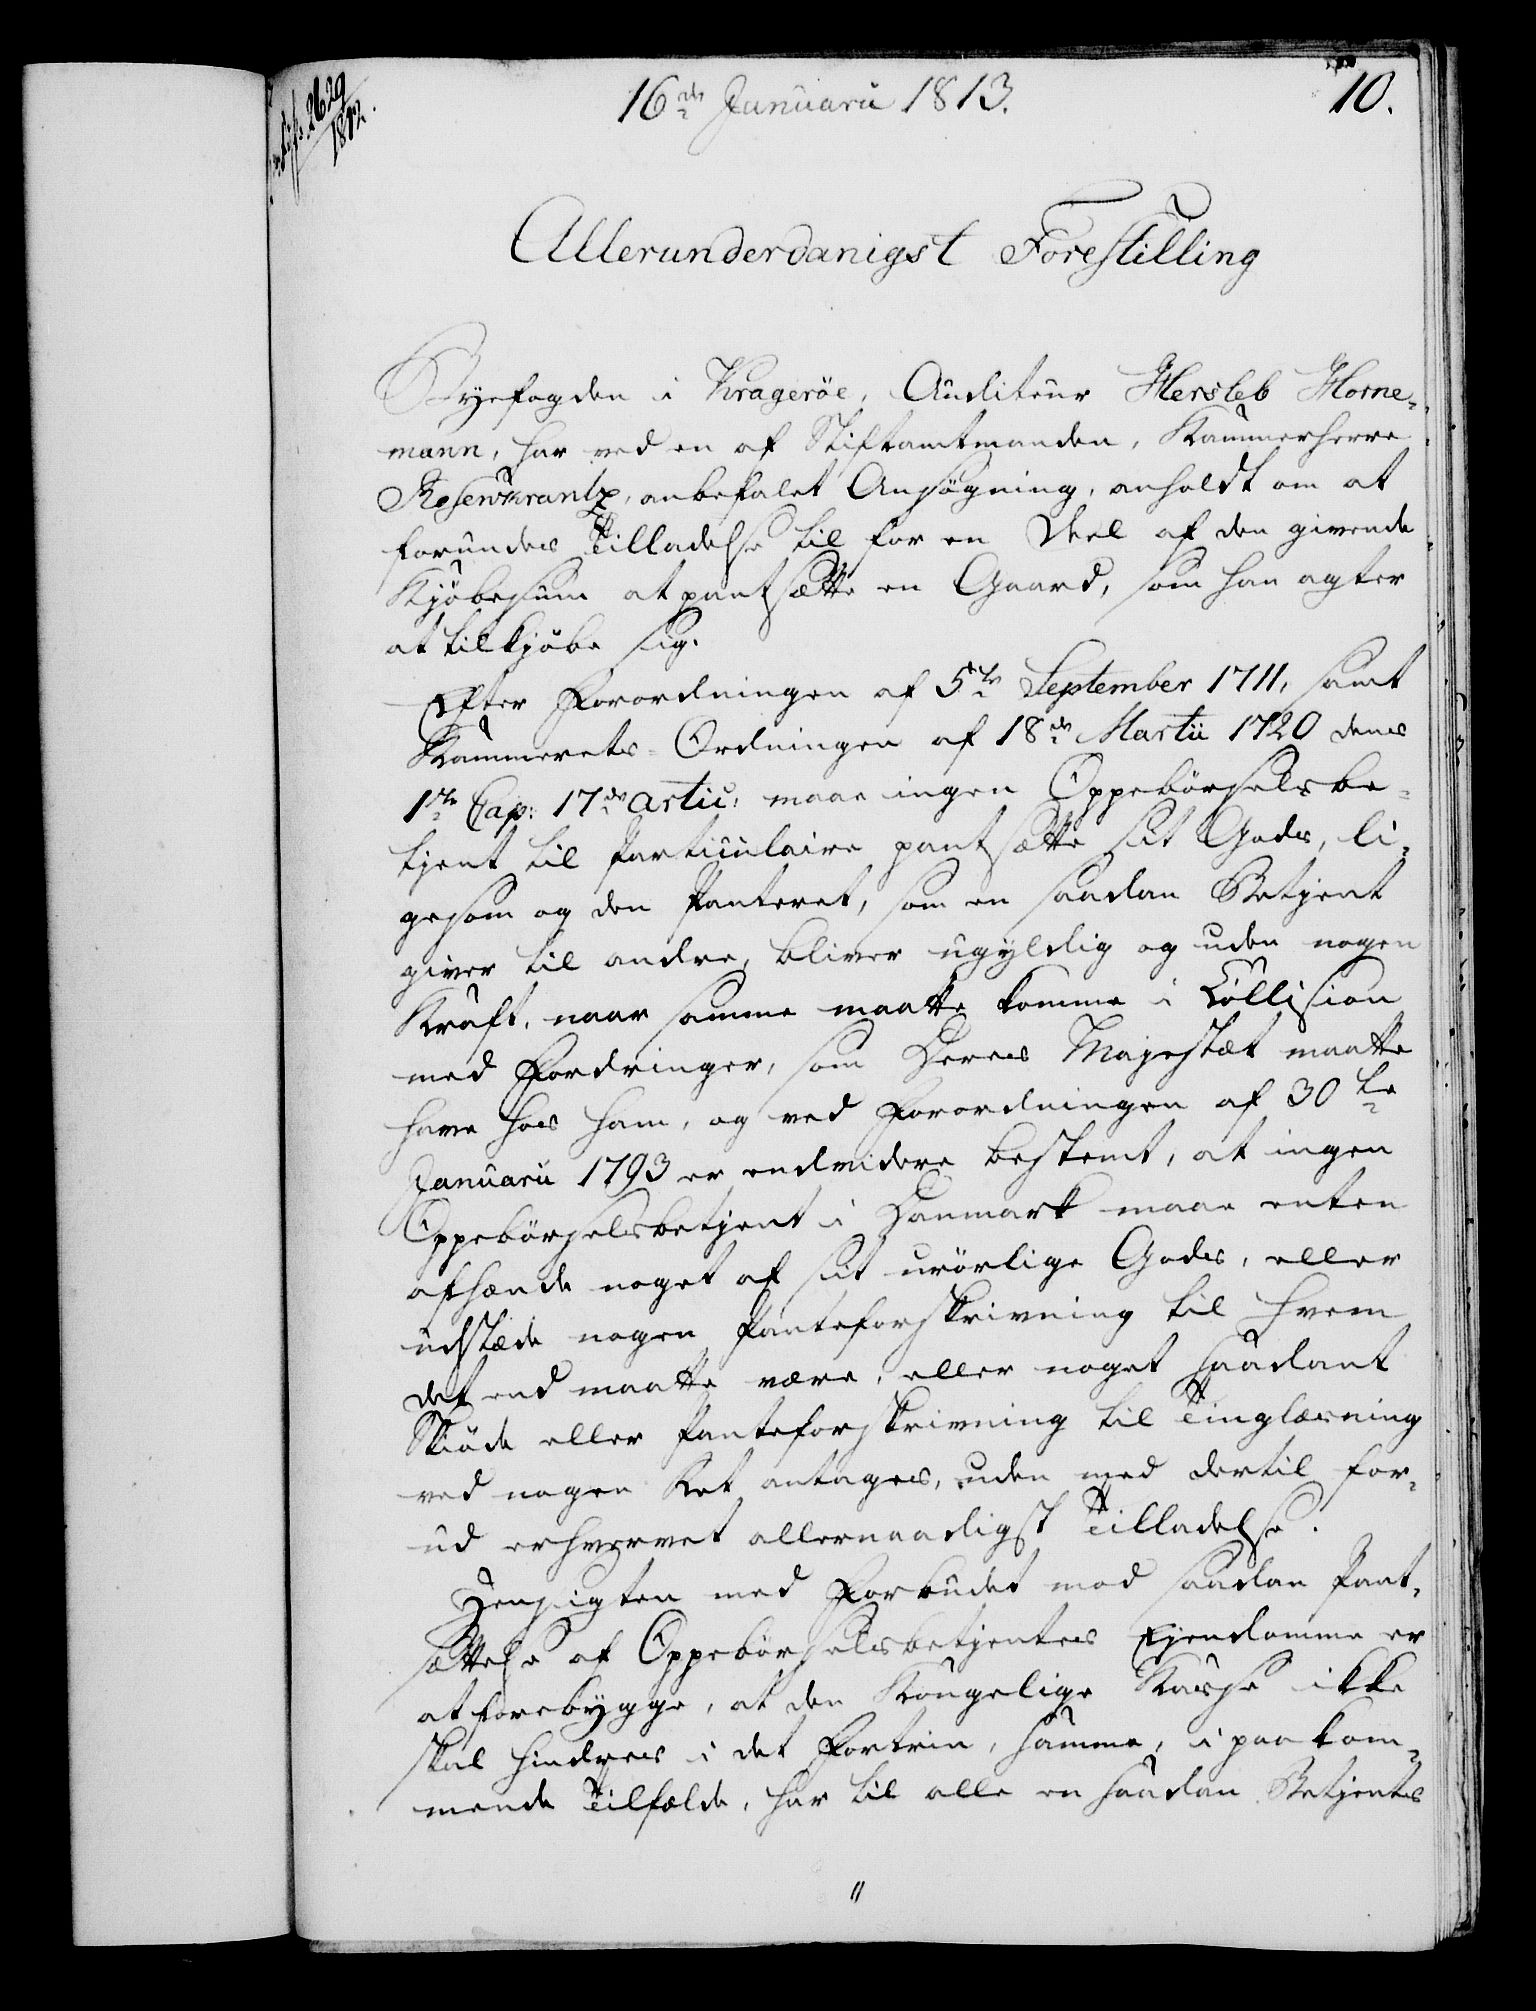 2629
1812.
16de Januarii 1813.
10.
Allerunderdanigst Forestilling
Byefogden i Kragerøe, Auditeur Hersleb Horne-
mann, har ved en af Stiftamtmanden, Kammerherre
Rosenkrantz, anbefalet Ansøgning, anholdt om at
forundes Tilladelse til for en Deel af den givende
Kjøbesum at pantsætte en Gaard, som han agter
at tilkjøbe sig.
Efter Forordningen af 5te September 1711, samt
Kammerets-Ordningen af 18de Martii 1720 dens
1ste Cap: 17de Artic: maae ingen Oppebørselsbe-
tjent til Particulaire pantsætte sit Gods, li-
gesom og den Panteret, som en saadan Betjent
giver til andre, bliver ugyldig og uden nogen
Kraft, naar samme maatte komme i Collision
med Fordringer, som Deres Majestæt maatte
have hos ham, og ved Forordningen af 30te
Januarii 1793 er endvidere bestemt, at ingen
Oppebørselsbetjent i Danmark maae enten
afhænde noget af sit urørlige Gods, eller
udstæde nogen Panteforskrivning til hvem
det end maatte være, eller noget saadant
Skiøde eller Panteforskrivning til Tinglæsning
ved nogen Ret antages, uden med dertil for-
ud erhvervet allernaadigst Tilladelse.
Hensigten med Forbudet mod saadan Pant-
sættelse af Oppebørselsbetjentes Ejendomme er
at forebygge, at den Kongelige Kasse ikke
skal hindres i det Fortrin, samme, i paakom-
mende Tilfælde, har til alle en saadan Betjents
"